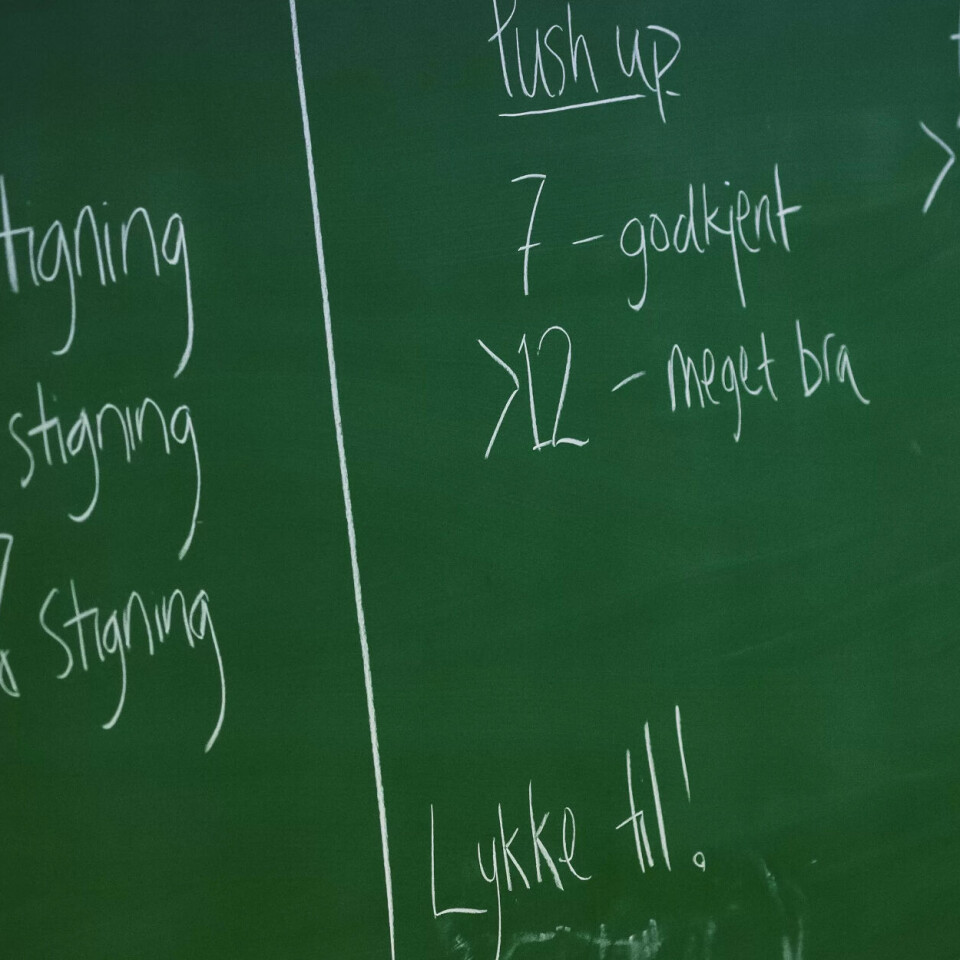 stigning
stigning
stigning
Push up
7 - godkjent
>12 - meget bra
Lykke till!
>